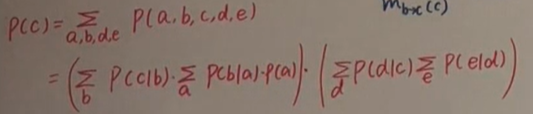 P(c) = Σ_{a,b,d,e} P(a,b,c,d,e) m_{b→c}(c)
= (Σ_b P(c|b)·Σ_a P(b|a)·P(a))·(Σ_d P(d|c) Σ_e P(e|d))